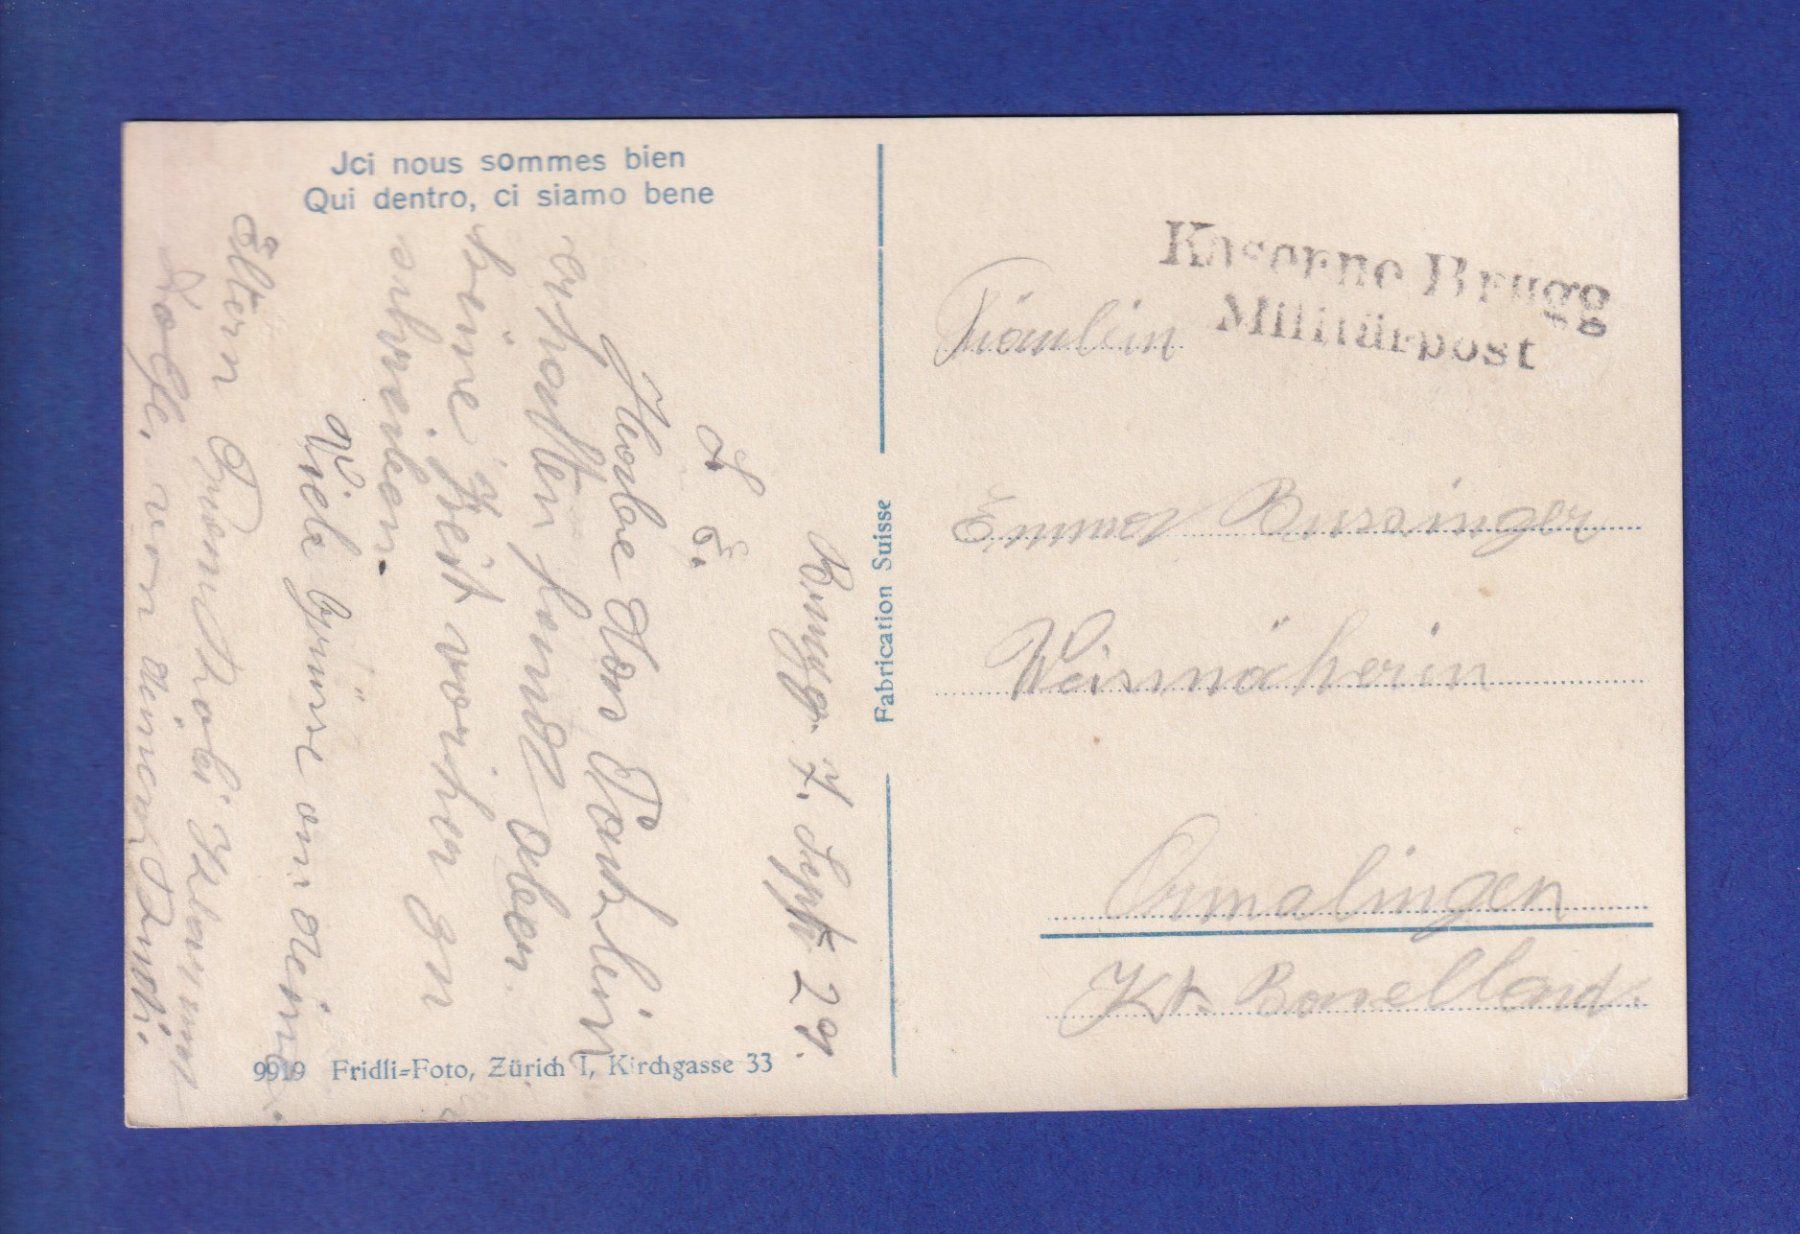 Jci nous sommes bien
Qui dentro, ci siamo bene
Brugg. 7. Sept 29.
L E.
Habe don Pack lein
erhalten fand aber
keine Zeit vorher zu
schreiben.
Viele Grüsse an deine
Eltern
von deinem Ruedi.
9919 Fridli=Foto, Zürich I, Kirchgasse 33
Fabrication Suisse
Kaserne Brugg
Militärpost
Fräulein
Emma Bussinger
Weissnäherin
Ormalingen
Kt. Baselland.